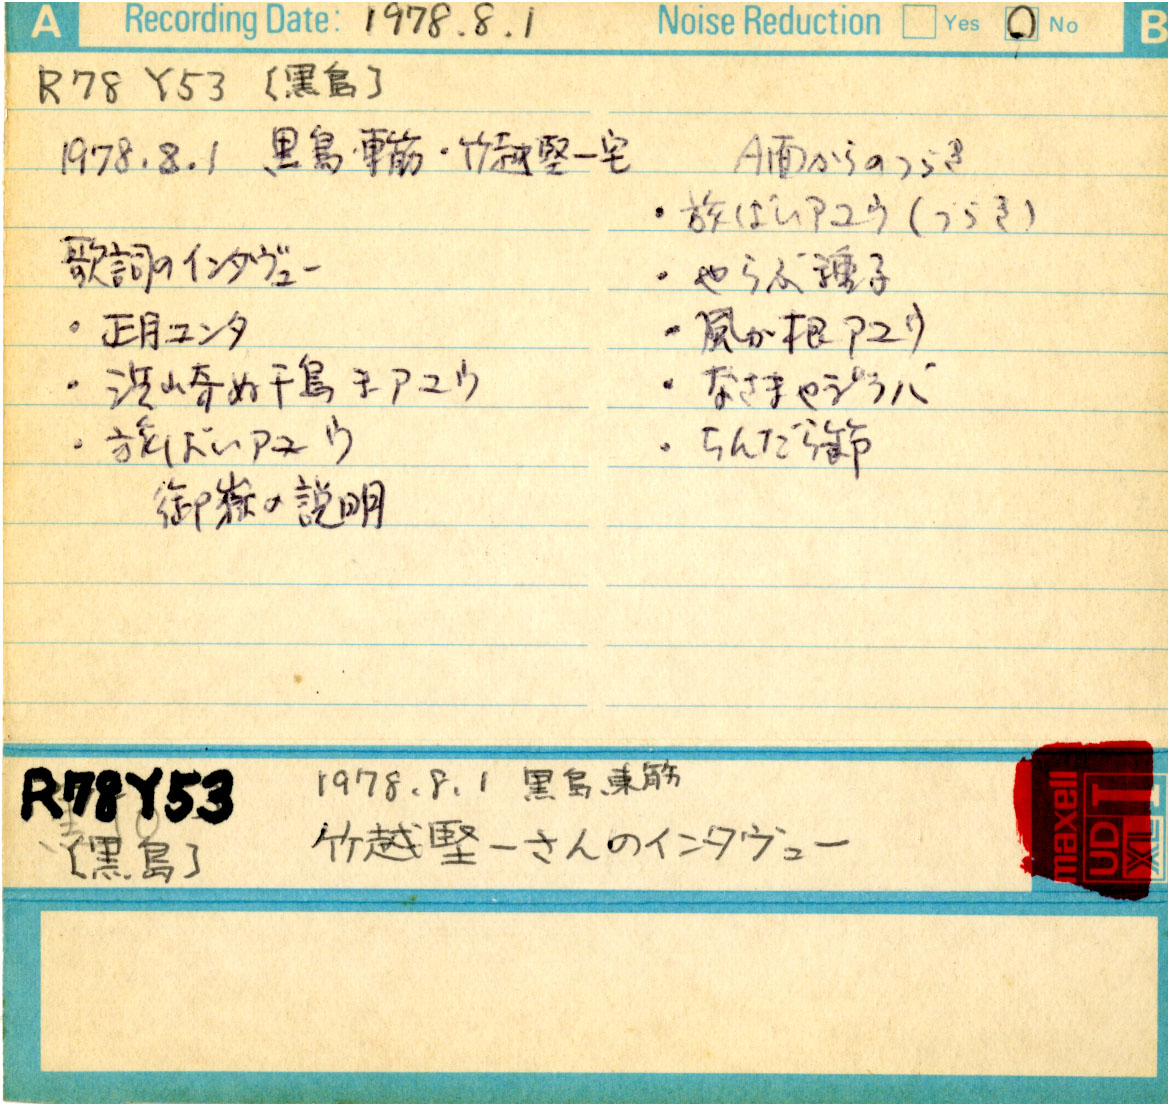 A Recording Date: 1978.8.1 Noise Reduction Yes No B
R78 Y53 [黒島]
1978.8.1 黒島・東筋・竹越堅一宅
歌詞のインタヴュー
・正月ユンタ
・浜崎ぬ千鳥まアユウ
・旅ばいアユウ
御嶽の説明
A面からのつづき
・旅ばいアユウ(つづき)
・やらぶ種子
・風が根アユウ
・なさまやゆうバ
・ちんだら節
R78Y53
[黒島]
1978.8.1 黒島、東筋
竹越堅一さんのインタヴュー
maxell
UD
XL I